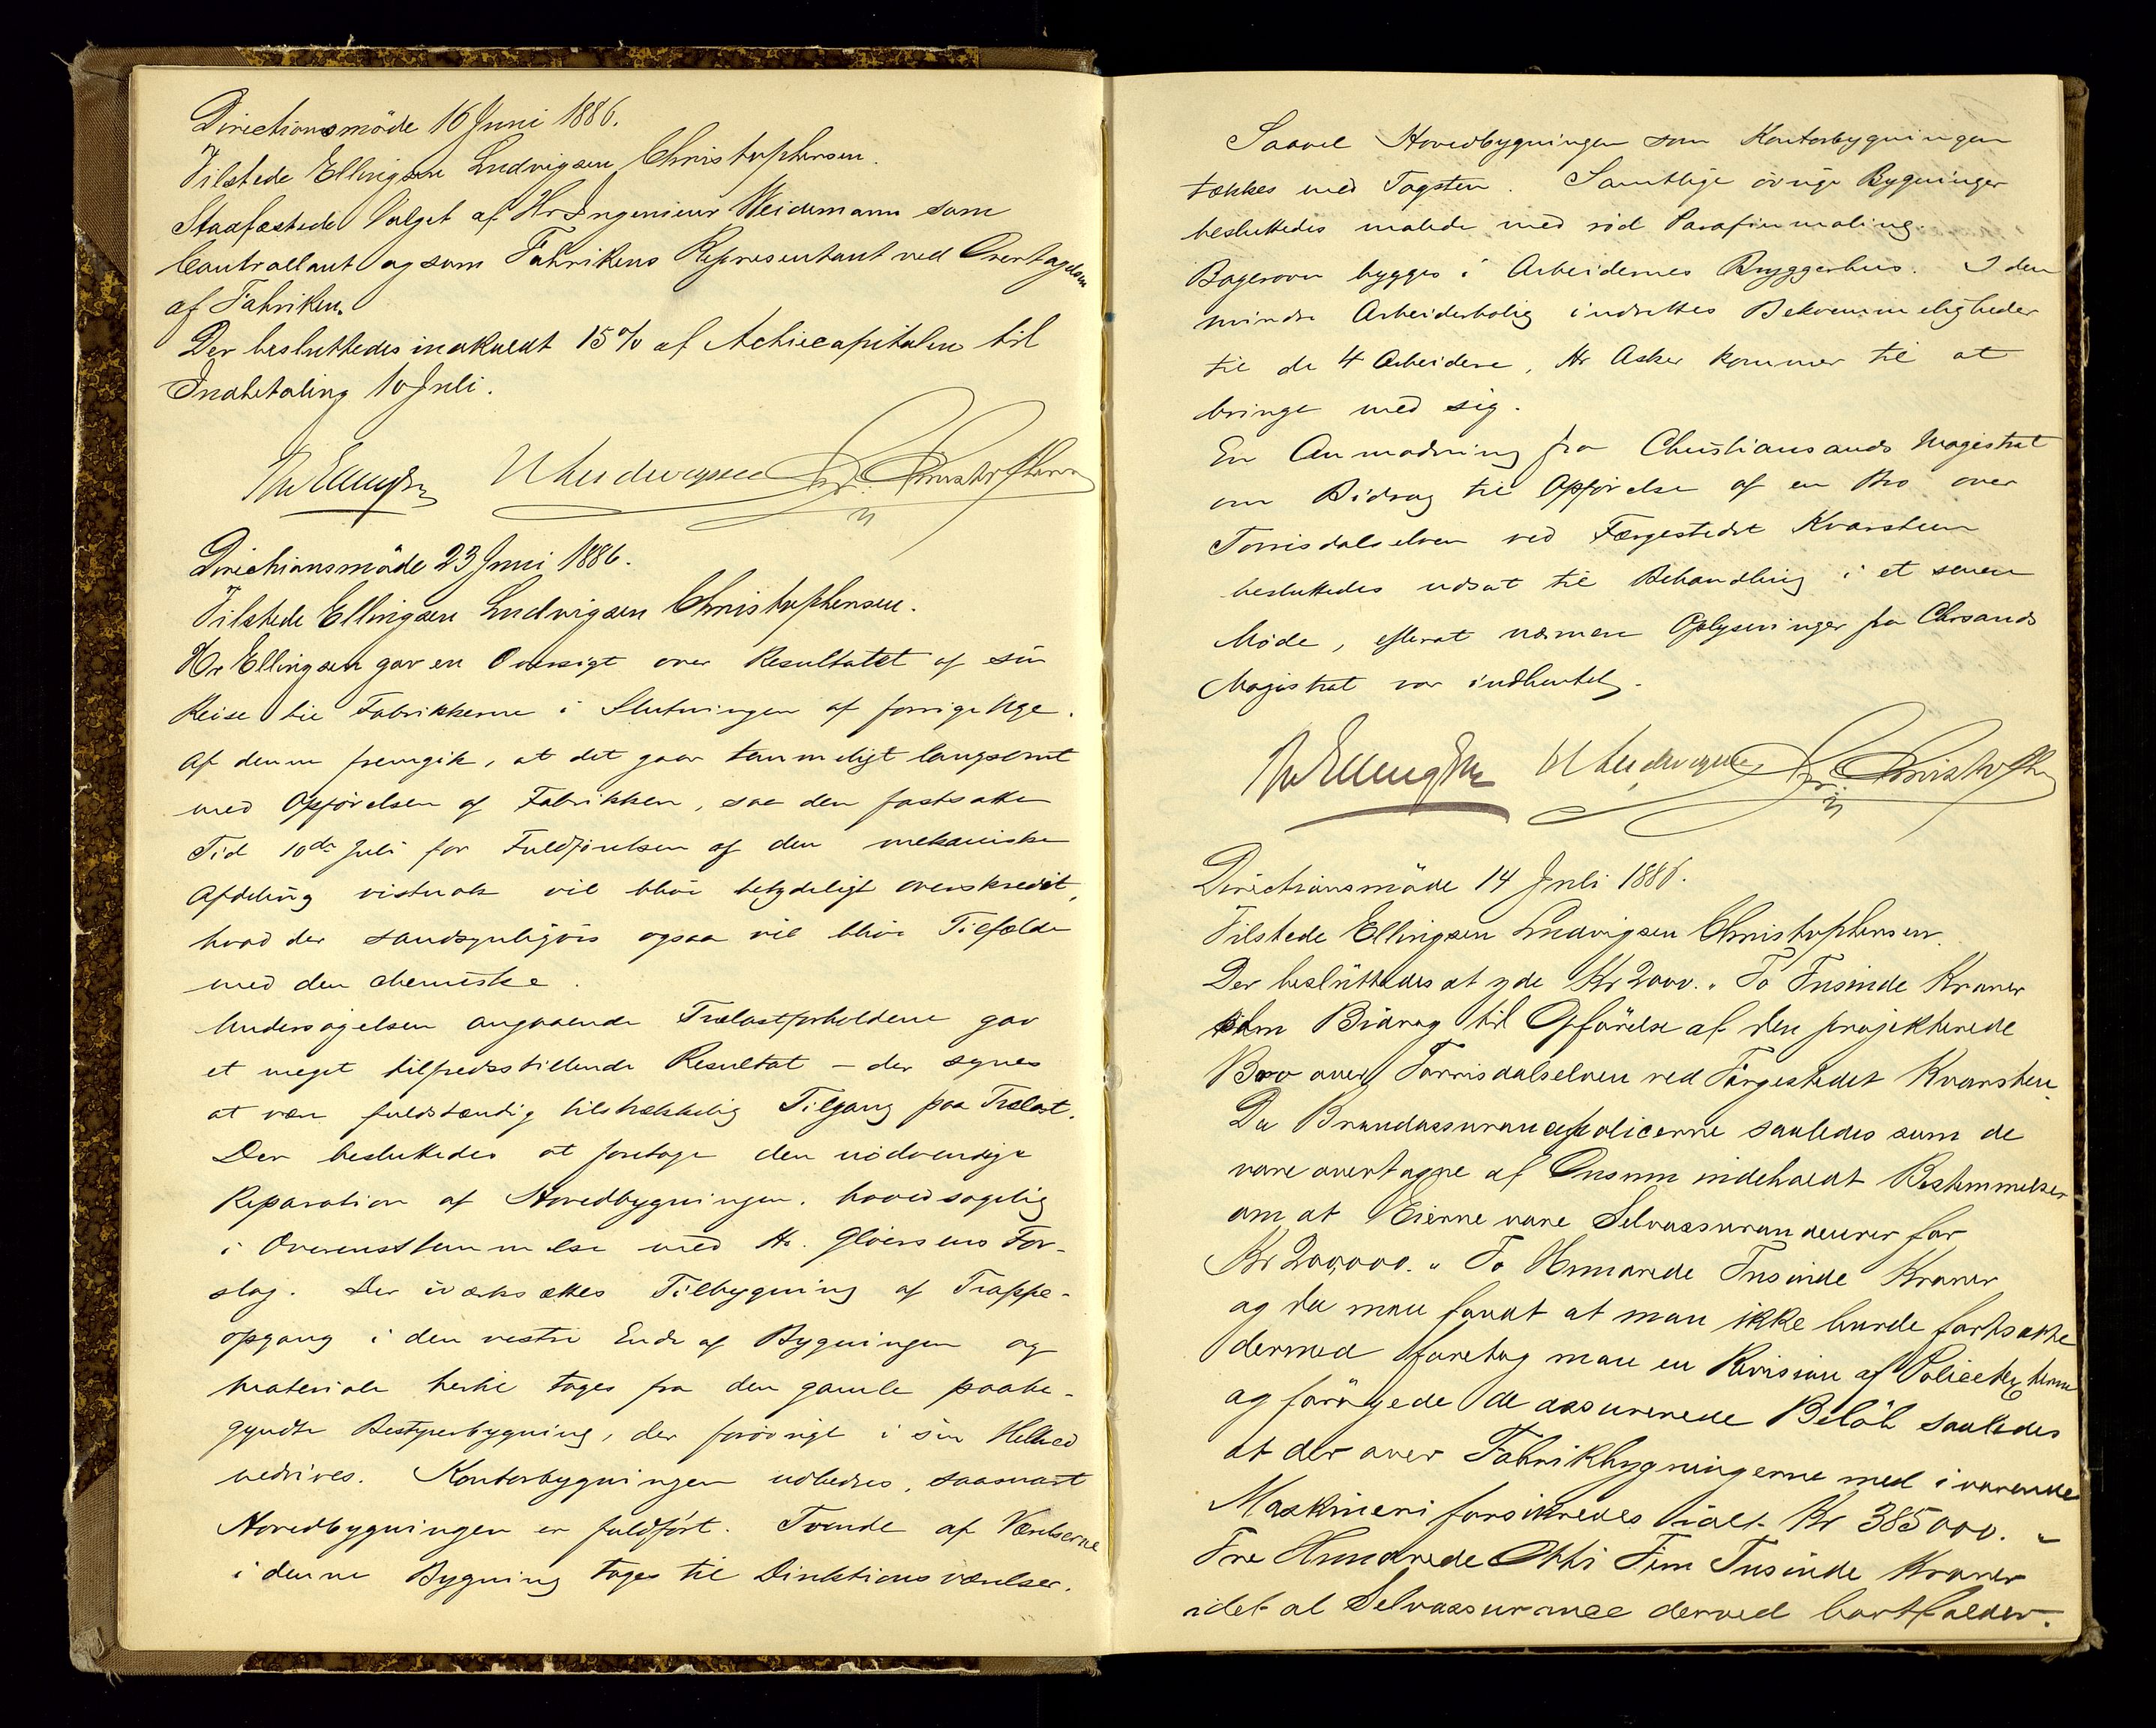 Directionsmöde 16 Juni 1886.
Tilstede Ellingsen Ludvigsen Christophersen.
Stadfæstede Valget af Hr Ingenieur Weidemann som
Controllant og som Fabrikens Representant ved Overtagelsen
af Fabriken.
Der besluttedes indkaldt 15% af Actiecapitalen til
Indbetaling 10 Juli.
Th Ellingsen H Ludvigsen Fr. Christophersen
Directionsmöde 23 Juni 1886.
Tilstede Ellingsen Ludvigsen Christophersen.
Hr Ellingsen gav en Oversigt over Resultatet af sin
Reise til Fabrikkerne i Slutningen af forrige Uge.
Af denne fremgik, at det gaar temmeligt langsomt
med Opførelsen af Fabrikken, saa den fastsatte
Tid 10de Juli for Fuldførelsen af den mekaniske
Afdeling vistnok vil blive betydeligt overskredet,
hvad der sandsynligvis ogsaa vil blive Tilfælde
med den chemiske.
Undersøgelsen angaaende Trælastforholdene gav
et meget tilfredsstillende Resultat – der synes
at være fuldstændig tilstrækkelig Tilgang paa Trælast.
Der besluttedes at foretage den nødvendige
Reparation af Hovedbygningen, hovedsagelig
i Overensstemmelse med Hr. Gløersens For-
slag. Der iværksættes Tilbygning af Trappe-
opgang i den vestre Ende af Bygningen og
Materiale hertil tages fra den gamle paabe-
gyndte Bestyrerbygning, der forøvrigt i sin Helhed
nedrives. Kontorbygningen udbedres, saasnart
Hovedbygningen er fuldført. Tvende af Værelserne
i denne Bygning tages til Direktionsværelser.
Saavel Hovedbygningen som Kontorbygningen
tækkes med Tagsten. Samtlige øvrige Bygninger
besluttedes malede med rød Parafinmaling.
Bagerovn bygges i Arbeidernes Bryggerhus. I den
mindre Arbeiderbolig indrettes Bekvemmeligheder
til de 4 Arbeidere, Hr Asker kommer til at
bringe med sig.
En Anmodning fra Christiansands Magistrat
om Bidrag til Opførelse af en Bro over
Torrisdalselven ved Færgestedet Kvarsten
besluttedes udsat til Behandling i et senere
Møde, efterat nærmere Oplysninger fra Chrsands
Magistrat var indhentet.
Th Ellingsen H Ludvigsen Fr. Christophersen
Directionsmöde 14 Juli 1886.
Tilstede Ellingsen Ludvigsen Christophersen.
Der beslüttedes at yde Kr 2000. " To Tusinde Kroner
som Bidrag til Opförelse af den projekterede
Bro over Torrisdalselven ved Färgestedet Kvarsten.
Da Brandassurancepolicerne saaledes som de
vare overtagne af Onsum indeholdt Bestemmelser
om at Eierne vare Selvassurandeurer for
Kr 200,000. " To Hundrede Tusinde Kroner
og da man fandt at man ikke burde fortsætte
dermed foretog man en Revision af Policerne
og forögede de assurerede Belöb saaledes
at der over Fabrikbygningerne med ivarende
Maskineri forsikredes ialt Kr 385000. "
Tre Hundrede Otti Fem Tusinde Kroner
idet al Selvassurance derved bortfalder.